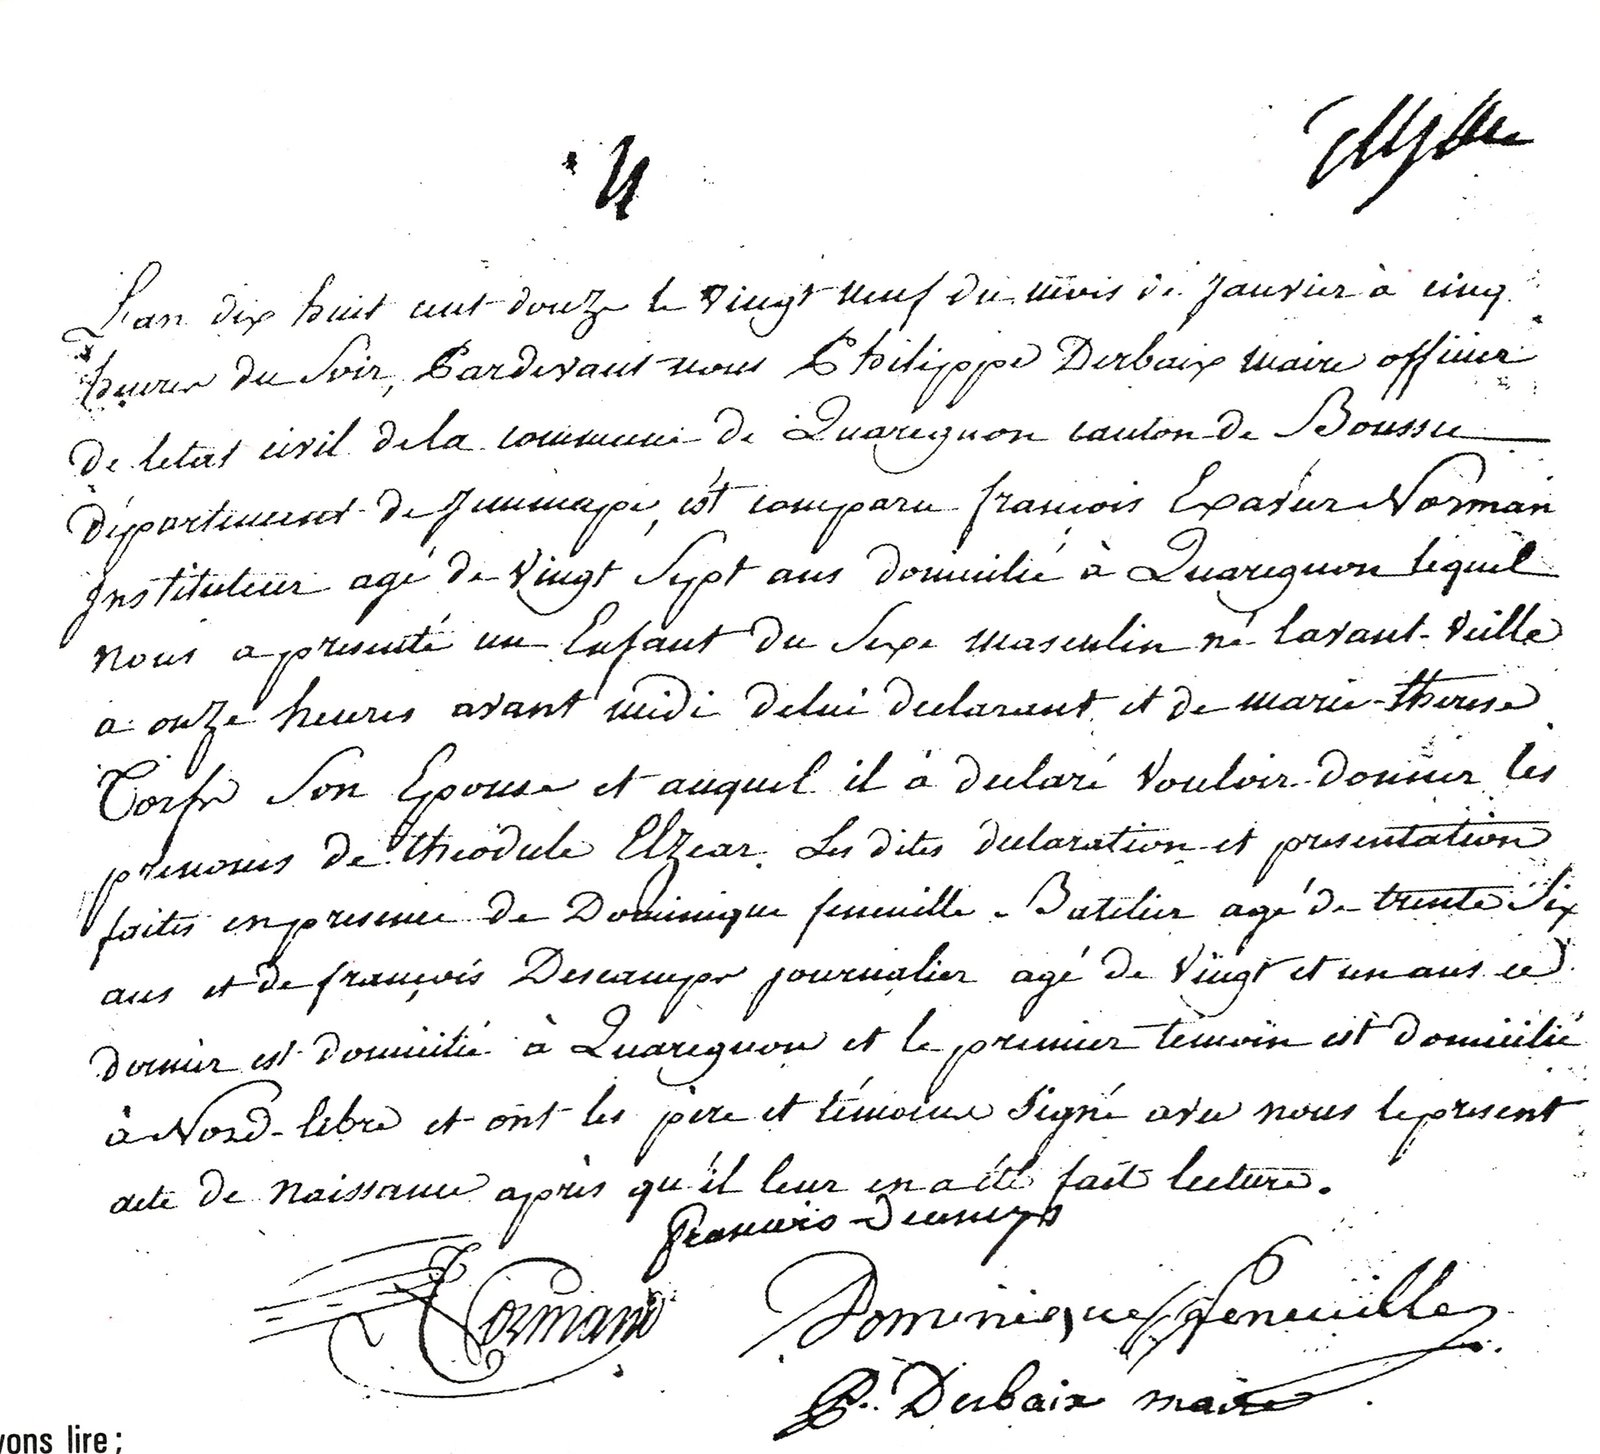 4
L'an dix huit cent douze le vingt neuf du mois de Janvier à cinq
heures du Soir, Pardevant nous Philippe Derbaix maire officier
de letat civil de la commune de Quaregnon canton de Boussu
département de Jemmape, est comparu françois Exavier Norman
Instituteur agé de vingt Sept ans domicilié à Quaregnon lequel
nous a presenté un Enfant du Sexe masculin né lavant-veille
a onze heures avant midi de lui declarant et de marie-therese
Torfs Son Epouse et auquel il à declaré Vouloir donner les
prenoms de théodule Elzear. Les dites declaration et presentation
faites en presence de Dominique feneuille Batelier agé de trente Six
ans et de françois Descamps journalier agé de Vingt et un ans ce
dernier est domicilié à Quaregnon et le premier témoin est domicilié
à Nord-libre et ont les père et témoins Signé avec nous le present
acte de naissance après qu'il leur en a été fait lecture.
François Decamps
Normand Dominique feneuille
P. Derbaix maire
vons lire ;